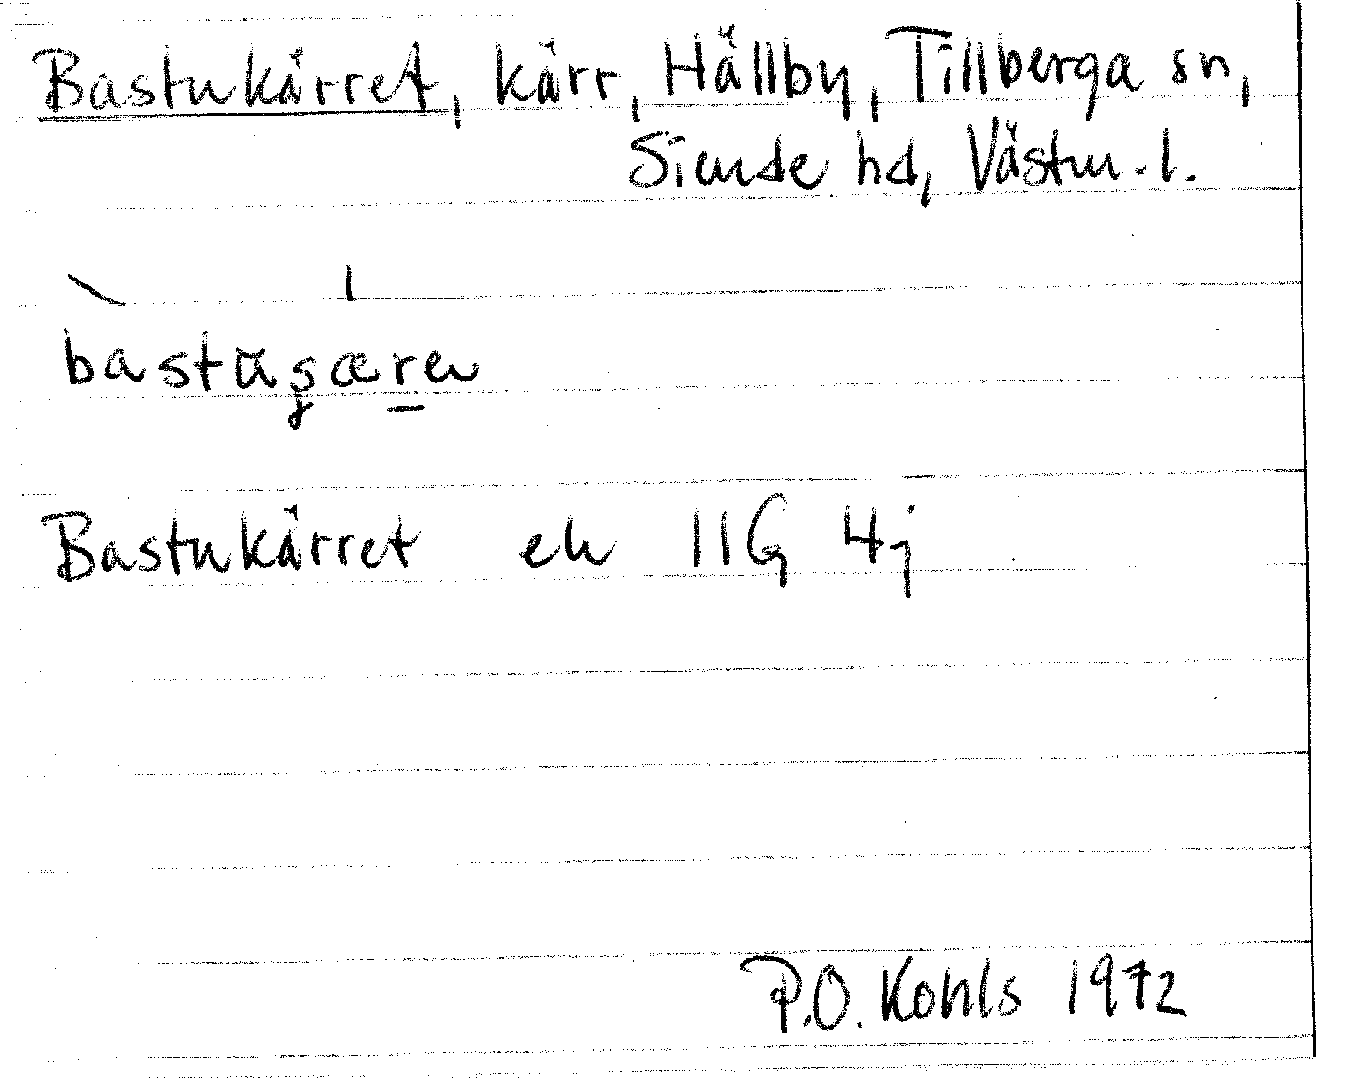 Bastukärret, kärr, Hällby, Tillberga sn,
Siende hd, Västm. l.
bastuɕære
Bastukärret ek 11G 4j
P.O. Kohls 1972